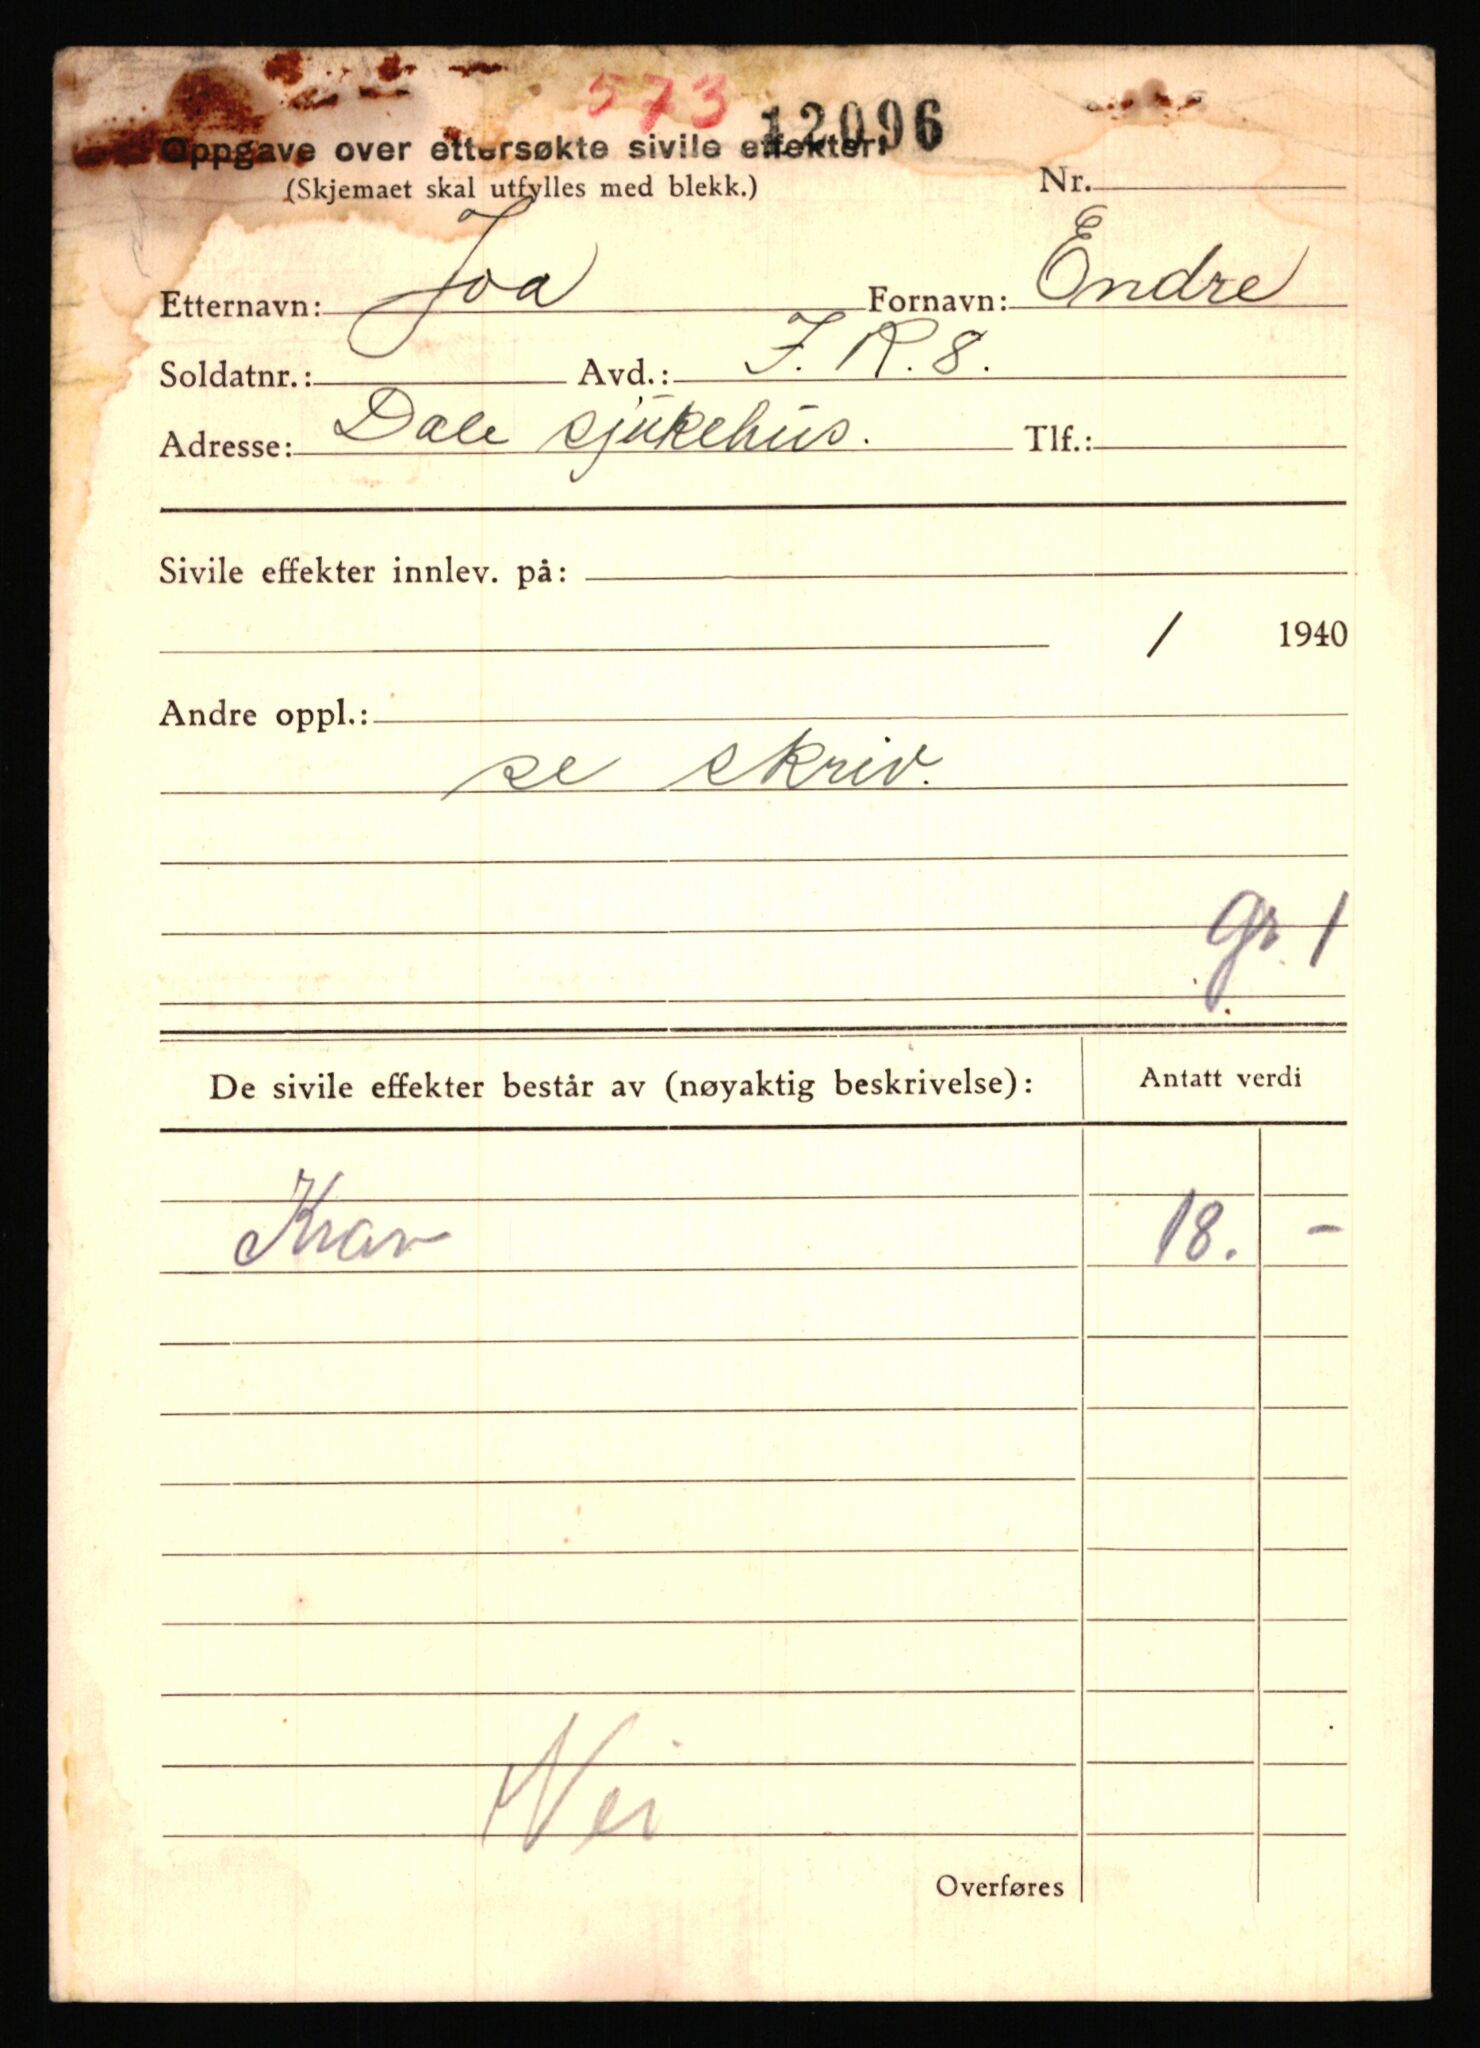 573 12096
Oppgave over ettersøkte sivile effekter:
(Skjemaet skal utfylles med blekk.) Nr.
Etternavn: Joa Fornavn: Endre
Soldatnr.: Avd.: I.R.8.
Adresse: Dale sjukehus. Tlf.:
Sivile effekter innlev. på:
/ 1940
Andre oppl.:
se skriv.
gr. 1
De sivile effekter består av (nøyaktig beskrivelse): Antatt verdi
Krav 18. -
Nei
Overføres